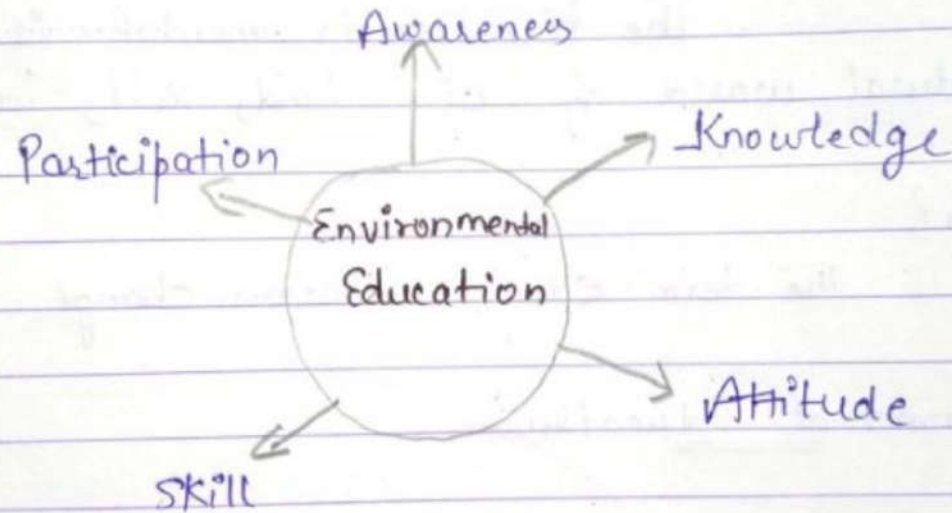 Awareness
Participation
Knowledge
Environmental
Education
Attitude
Skill